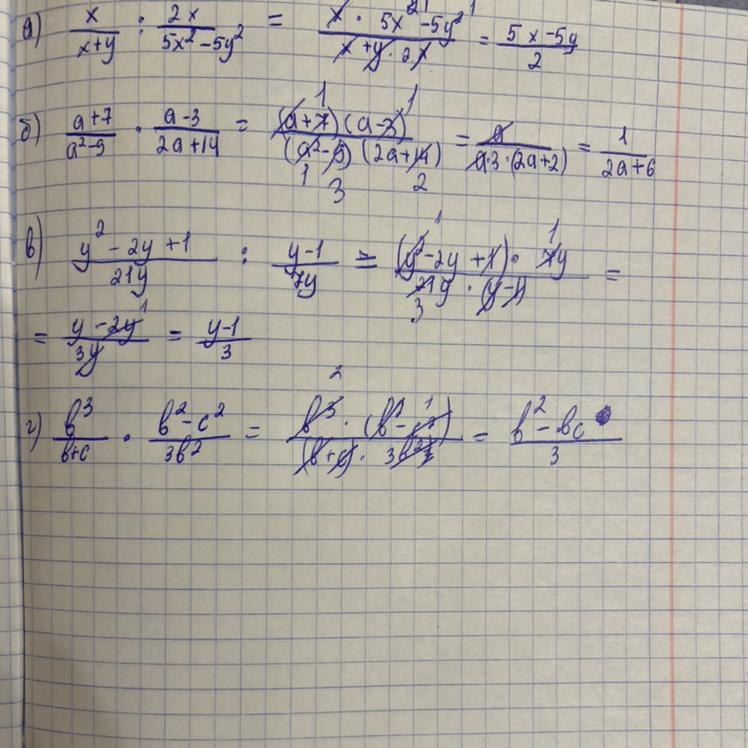 а) x/(x+y) : 2x/(5x²-5y²) = (x · 5x²-5y²)/(x+y · 2x) = (5x-5y)/2
б) (a+7)/(a²-9) · (a-3)/(2a+14) = ((a+7)(a-3))/((a²-9)(2a+14)) = a/(a·3·(2a+2)) = 1/(2a+6)
в) (y²-2y+1)/(21y) : (y-1)/(7y) = ((y²-2y+1) · 7y)/(21y · (y-1)) =
= (y-2y)/(3y) = (y-1)/3
г) b³/(b+c) · (b²-c²)/(3b²) = (b³ · (b²-c²))/((b+c) · 3b²) = (b²-bc)/3